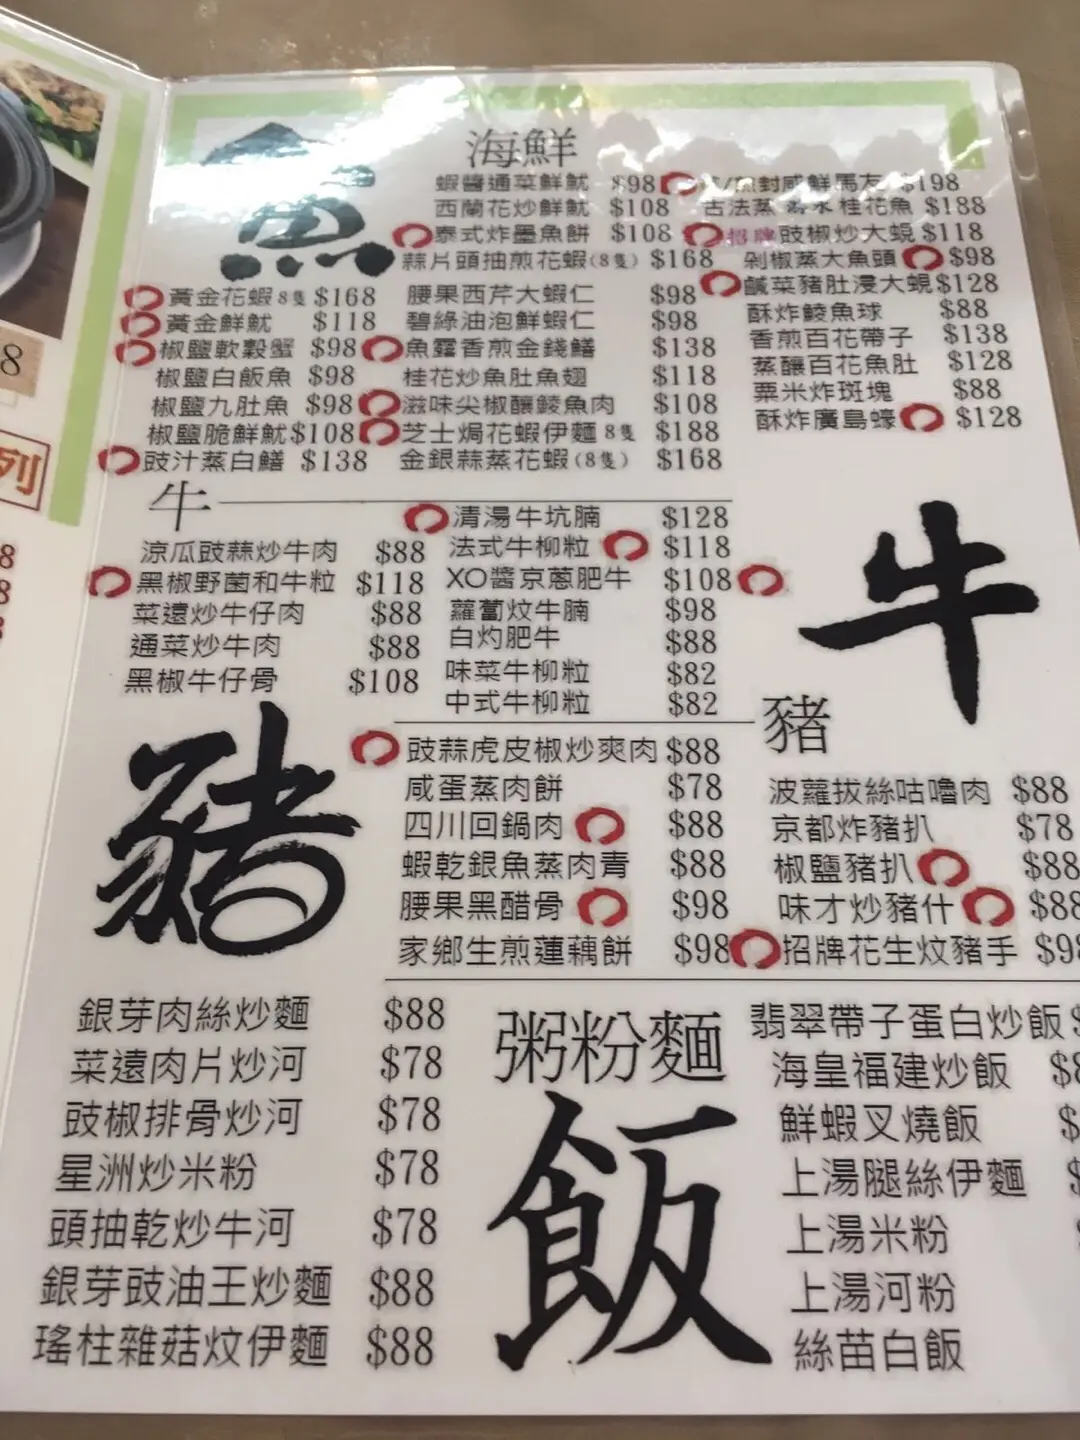 8
列
8
8
魚
海鮮
蝦醬通菜鮮魷 $98
西蘭花炒鮮魷 $108
泰式炸墨魚餅 $108
蒜片頭抽煎花蝦(8隻) $168
黃金花蝦8隻 $168
黃金鮮魷 $118
椒鹽軟殼蟹 $98
椒鹽白飯魚 $98
椒鹽九肚魚 $98
椒鹽脆鮮魷 $108
豉汁蒸白鱔 $138
腰果西芹大蝦仁 $98
碧綠油泡鮮蝦仁 $98
魚露香煎金錢鱔 $138
桂花炒魚肚魚翅 $118
滋味尖椒釀鯪魚肉 $108
芝士焗花蝦伊麵8隻 $188
金銀蒜蒸花蝦(8隻) $168
封咸鮮馬友 $198
古法蒸 桂花魚 $188
招牌豉椒炒大蜆 $118
剁椒蒸大魚頭 $98
鹹菜豬肚浸大蜆 $128
酥炸鯪魚球 $88
香煎百花帶子 $138
蒸釀百花魚肚 $128
粟米炸斑塊 $88
酥炸廣島蠔 $128
牛
涼瓜豉蒜炒牛肉 $88
黑椒野菌和牛粒 $118
菜遠炒牛仔肉 $88
通菜炒牛肉 $88
黑椒牛仔骨 $108
清湯牛坑腩 $128
法式牛柳粒 $118
XO醬京蔥肥牛 $108
蘿蔔炆牛腩 $98
白灼肥牛 $88
味菜牛柳粒 $82
中式牛柳粒 $82
牛
豬
豬
豉蒜虎皮椒炒爽肉 $88
咸蛋蒸肉餅 $78
四川回鍋肉 $88
蝦乾銀魚蒸肉青 $88
腰果黑醋骨 $98
家鄉生煎蓮藕餅 $98
波蘿拔絲咕嚕肉 $88
京都炸豬扒 $78
椒鹽豬扒 $88
味才炒豬什 $88
招牌花生炆豬手 $98
銀芽肉絲炒麵 $88
菜遠肉片炒河 $78
豉椒排骨炒河 $78
星洲炒米粉 $78
頭抽乾炒牛河 $78
銀芽豉油王炒麵 $88
瑤柱雜菇炆伊麵 $88
粥粉麵
飯
翡翠帶子蛋白炒飯 $
海皇福建炒飯 $8
鮮蝦叉燒飯 $
上湯腿絲伊麵 $
上湯米粉
上湯河粉
絲苗白飯